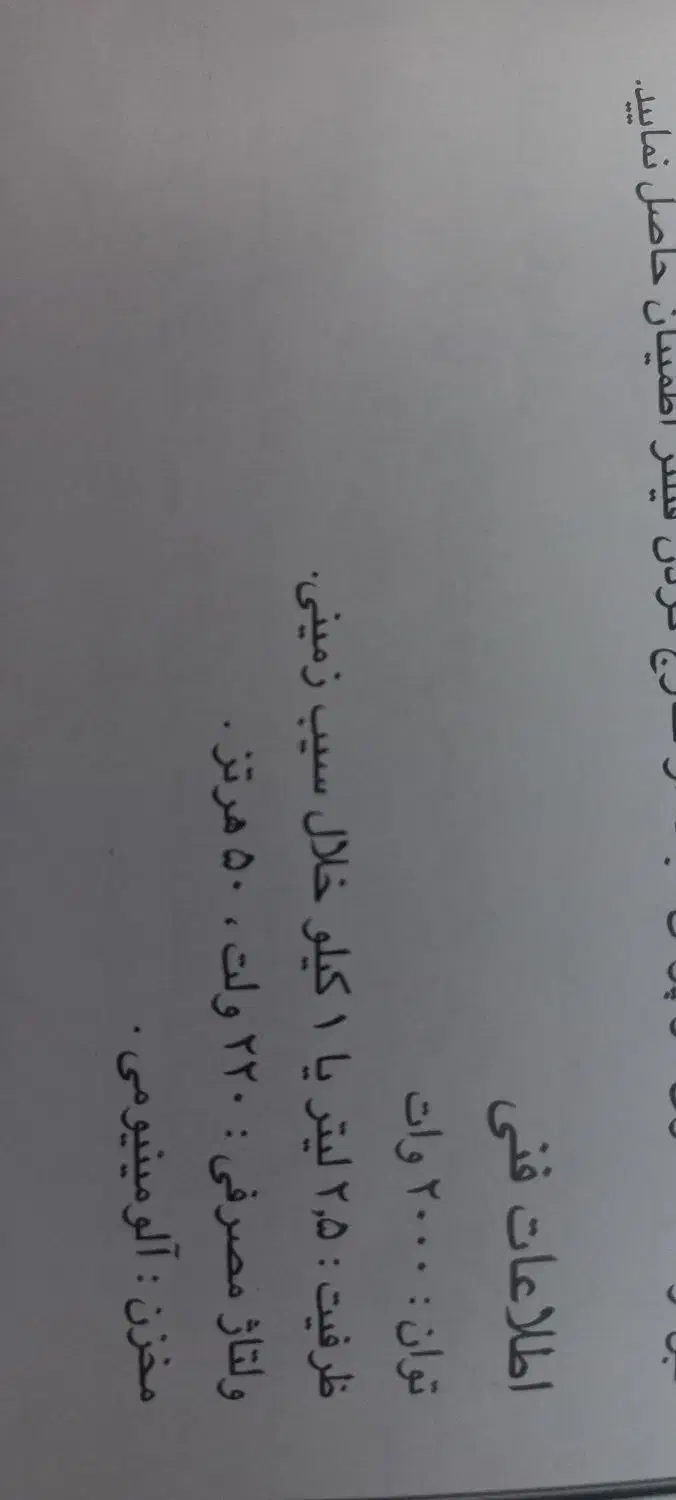 اطمینان حاصل نمایید.
اطلاعات فنی
توان : ۲۰۰۰ وات
ظرفیت : ۲,۵ لیتر یا ۱ کیلو خلال سیب زمینی.
ولتاژ مصرفی : ۲۲۰ ولت ، ۵۰ هرتز .
مخزن : آلومینیومی .